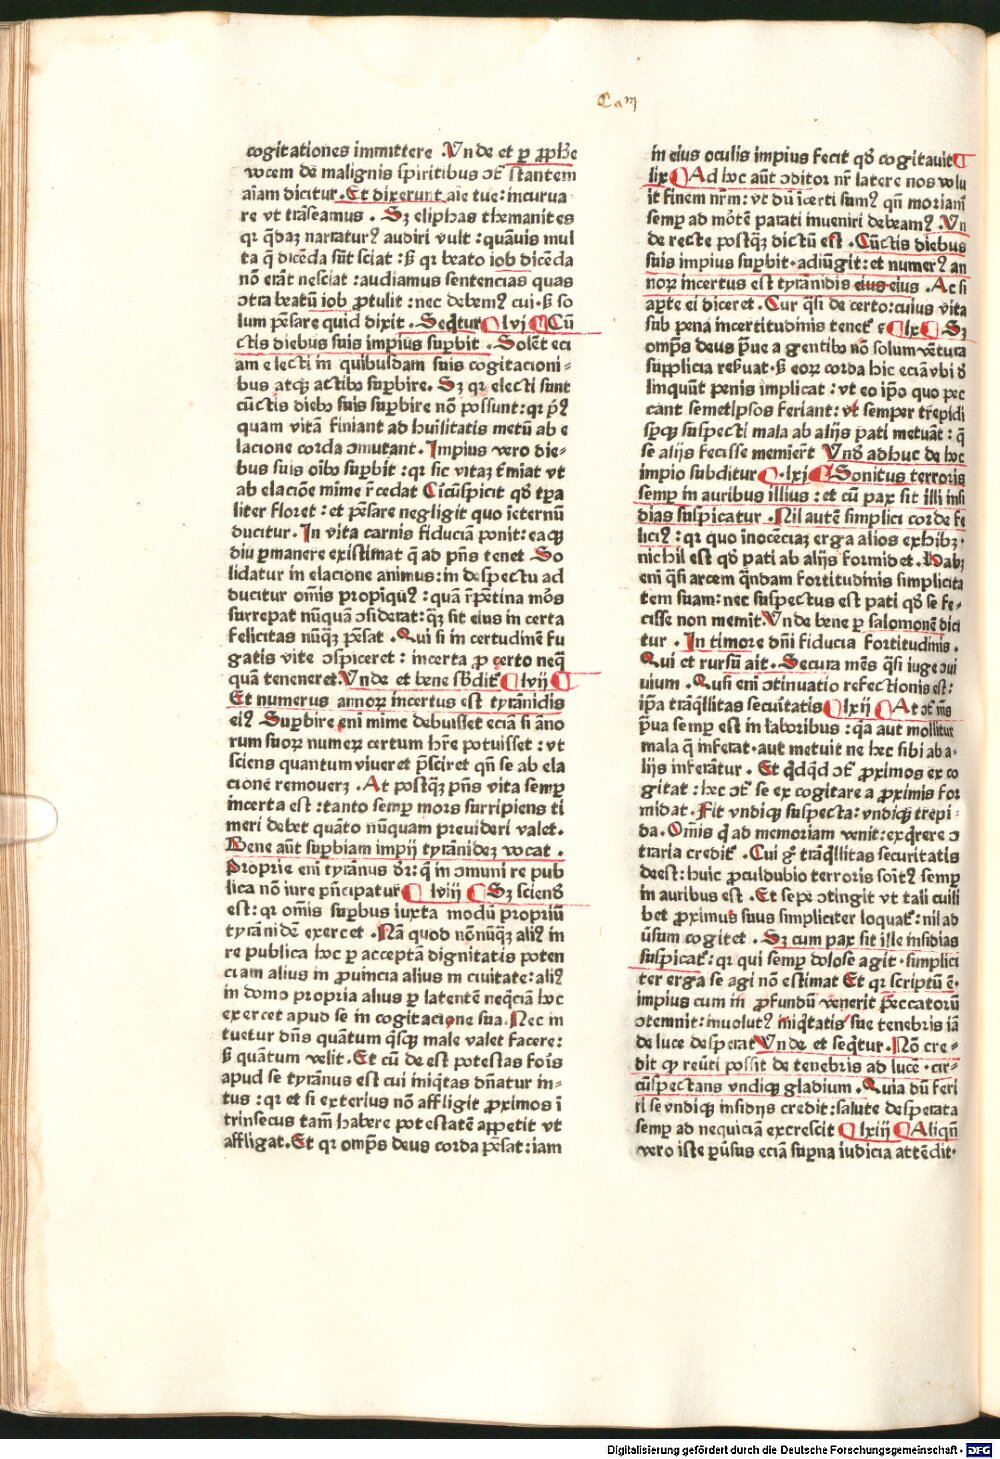 Cam
cogitationes immittere .Vnde et ꝑ ꝓph̄e
vocem de malignis spiritibus ↄt̄ stantem
aīam dicitur. Et dixerunt aīe tue: incurua
re vt trāseamus . Sꝫ eliphas themanites
qꝛ q̄daꝫ narraturꝰ audiri vult : quāuis mul
ta q̄ dicēda sūt sciat : ß qꝛ beato iob dicēda
nō erāt nesciat : audiamus sentencias quas
ↄtra beatū iob ꝓtulit : nec debemꝰ cui. ß so
lum pēsare quid dixit . Seq̄tur lvj Cū
ctis diebus suis impius suꝑbit . Solēt eci
am electi in quibusdam suis cogitacioni⸗
bus atqꝫ actibꝰ suꝑbire. Sꝫ qꝛ electi sunt
cūctis diebꝰ suis suꝑbire nō possunt: qꝛ pꝰ
quam vitā finiant ad hūilitatis metū ab e
lacione corda ↄmutant. Impius vero die⸗
bus suis oībꝰ suꝑbit : qꝛ sic vitaꝫ t̄miat vt
ab elacioē mime r̄cedat Cīcūspicit qd̓ tꝑa
liter floret : et pēsare negligit quo īeternū
ducitur. In vita carnis fiduciā ponit: eaqꝫ
diu ꝑmanere existimat q̄ ad pn̄s tenet So
lidatur in elacione animus: in despectu ad
ducitur om̄is propīquꝰ : quā r̄pētina mo᷒s
surrepat nūquā ↄsiderat: qꝫ sit eius in certa
felicitas nūqꝫ pēsat . Qui si in certudinē fu
gatis vite ↄspiceret : incerta ꝓ certo neqꝫ
quā teneneret. Vnde et bene sb̄ditꝰ lvij
Et numerus annoꝝ incertus est tyrānidis
eiꝰ Suꝑbire eni mime debuisset eciā si āno
rum suoꝝ numeꝝ certum hr̄e potuisset : vt
sciens quantum viueret p̄sciret qn̄ se ab ela
cionē remoueꝝ . At postqꝫ pn̄s vita semꝑ
incerta est : tanto semꝑ mors surripiens ti
meri debet quāto nūquam preuideri valet.
Bene aūt suꝑbiam impij tyrānideꝫ vocat .
Proprie eni tyrānus dr̄: q̄ in ↄmuni re pub
lica nō iure pn̄cipatur lviij Sꝫ sciend̓
est : qꝛ om̄is suꝑbus iuxta modū propriū
tyrānidē exercet . Nā quod nōnūqꝫ aliꝰ in
re publica hoc ꝑ acceptā dignitatis poten
ciam alius in ꝓuincia alius in ciuitate: aliꝰ
in domo propria alius ꝑ latentē neq̄ciā hoc
exercet apud se in cogitacione sua. Nec in
tuetur dn̄s quātum q̄sqꝫ male valet facere:
ß quātum velit . Et cū de est potestas foīs
apud se tyrānus est cui iniq̄tas dn̄atur in⸗
tus : qꝛ et si exterius nō affligit ꝓximos ī
trinsecus tam̄ habere potestatē appetit vt
affligat. Et qꝛ omp̄s deus corda pēsat : iam
in eius oculis impius fecit qd̓ cogitauit
lix Ad hoc aūt ↄditor nr̄ latere nos volu
it finem nr̄m: vt dū īcerti sumꝰ qn̄ moriamꝰ
semꝑ ad mortē parati inueniri debeamꝰ. Vn
de recte postqꝫ dictū est . Cūctis diebus
suis impius suꝑbit . adiūgit: et numerꝰ an
noꝝ incertus est tyrānidis eius eius . Ac si
aꝑte ei diceret . Cur q̄si de certo: cuius vita
sub pena incertitudinis tenetꝰ e lx Sꝫ
omp̄s deus ꝑue a gentibꝰ nō solum vētura
supplicia reseruat. ß eoꝝ corda hic eciā vbi d̓
linquūt penis implicat : vt eo ip̄o quo pec
cant semetipsos feriant : vt semper trepidi
spqꝫ suspecti mala ab alijs pati metuāt : q̄
se alijs fecisse meminērt Vnd̓ adhuc de hoc
impio subditur . lxj Sonitus terroris
semꝑ in auribus illius : et cū pax sit illi insi
dias suspicatur . Nil autē simplici corde fe
liciꝰ : qꝛ quo inocēciaꝫ erga alios exhibꝫ .
nichil est qd̓ pati ab alijs formidet . Habꝫ
eni q̄si arcem q̄ndam fortitudinis simplicita
tem suam: nec suspectus est pati qd̓ se fe⸗
cisse non memīt. Vnde bene ꝑ salomonē dici
tur . In timore dn̄i fiducia fortitudinis .
Qui et rursū ait . Secura mēs q̄si iuge ↄui
uium . Qusi eni ↄtinuatio refectionis est :
ip̄a traq̄llitas secuītatis lxij At ↄt̄ mēs
ꝑua semꝑ est in laboribus : q̄a aut mollitur
mala q̄ inferat . aut metuit ne hec sibi ab a⸗
lijs inferātur . Et q̄dq̄d ↄt̄ ꝓximos ex co
gitat : hec ↄt̄ se ex cogitare a ꝓximis for
midat . Fit vndiqꝫ suspecta: vndiqꝫ trepi⸗
da . Om̄is q̄ ad memoriam venit : exq̄rere ↄ
traria creditꝰ . Cui gͦ traq̄llitas securitatis
deest : huic ꝓculdubio terroris soītꝰ semꝑ
in auribus est . Et sepe ↄtingit vt tali cuili
bet ꝓximus suus simpliciter loquatꝰ : nil ad
ūsum cogitet . Sꝫ cum pax sit ille insidias
suspicatꝰ : qꝛ qui semꝑ dolose agit . simplici
ter erga se agi nō estimat Et qꝛ scriptū ē.
impius cum in ꝓfundū venerit peccatorū
ↄtemnit : inuolutꝰ iniq̄tatis sue tenebris iā
de luce desperat Vnde et seq̄tur . Nō cre⸗
dit qꝫ reūti possit de tenebris ad lucē . cir⸗
cūspectans vndiqꝫ gladium . Quia dū feri
ri se vndiqꝫ insidijs credit : salute desperata
semꝑ ad nequiciā excrescit lxiij Aliqn̄
vero iste ꝑūsus eciā suꝑna iudicia attēdit.
Digitalisierung gefördert durch die Deutsche Forschungsgemeinschaft - DFG